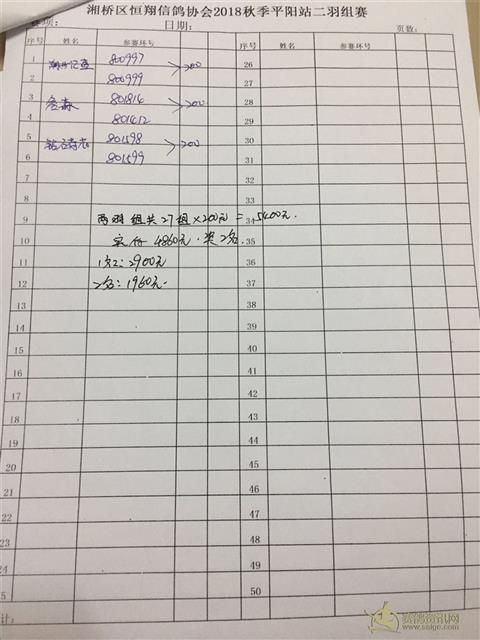 湘桥区恒翔信鸽协会2018秋季平阳站二羽组赛
项: 日期: 页数:
序号 姓名 参赛环号 序号 姓名 参赛环号
1 800997 >200 26
2 800999 27
3 801814 >200 28
4 801412 29
5 801598 >200 30
6 801599 31
7 32
8 33
9 两羽组共27组×200元=5400元. 34
10 实付4860元.奖2名. 35
11 1名:2900元 36
12 2名:1960元. 37
13 38
14 39
15 40
16 41
17 42
18 43
19 44
20 45
21 46
22 47
23 48
24 49
5 50
计:
赛鸽资讯网
www.saige.com